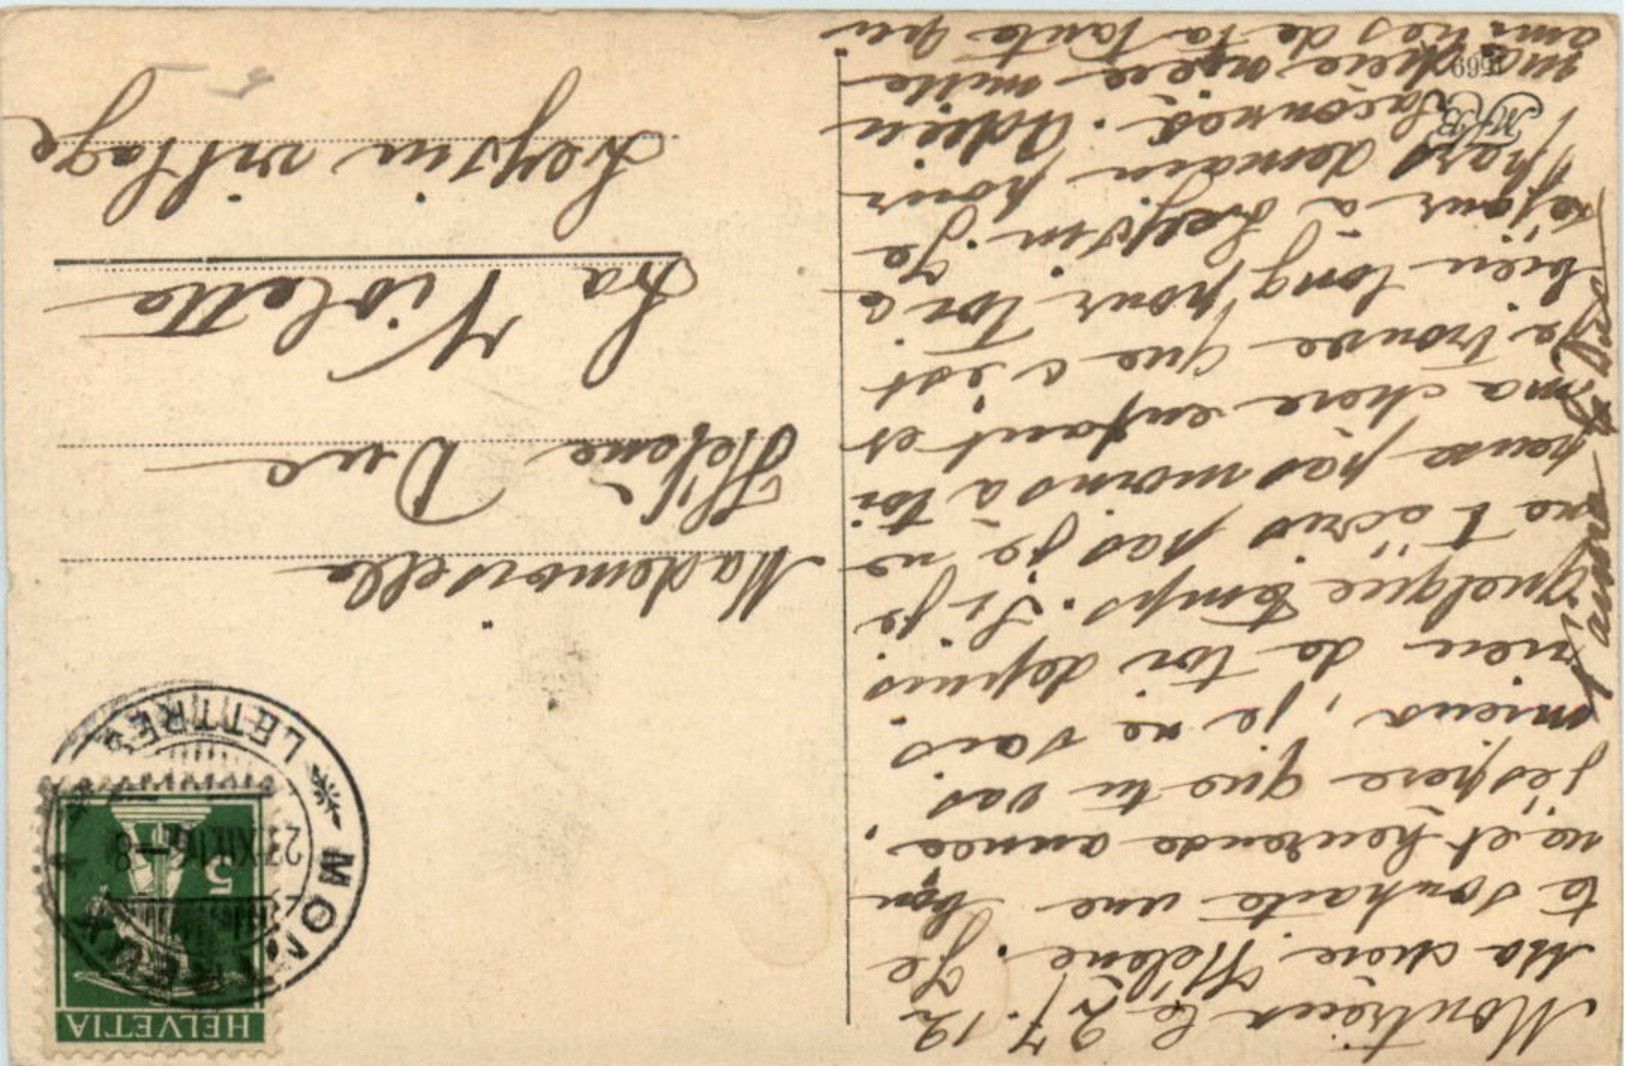 Montreux le 27. 12
Ma chère Hélène. Je
te souhaite une bon
ne et heureuse année,
j'espère que tu vas
mieux, je ne sais
rien de toi depuis
quelque temps. Si je
ne t'écris pas je ne
pense pas moins à toi
ma chère enfant et
je trouve que c'est
bien long pour toi ce
séjour à Leysin. Je
pars demain pour
Adieu
ma chère nièce mille
amitiés de ta tante qui
Mademoiselle
Hélène Duc
La Violette
Leysin village
HELVETIA
5
MONTREUX
LETTRES
27.XII.16-8
MKB
6699